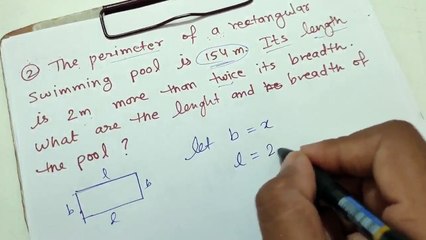 ② The perimeter of a rectangular
swimming pool is 154 m. Its length
is 2m more than twice its breadth.
What are the lenght and breadth of
the pool ?
let b = x
l = 2
l
b
b
l